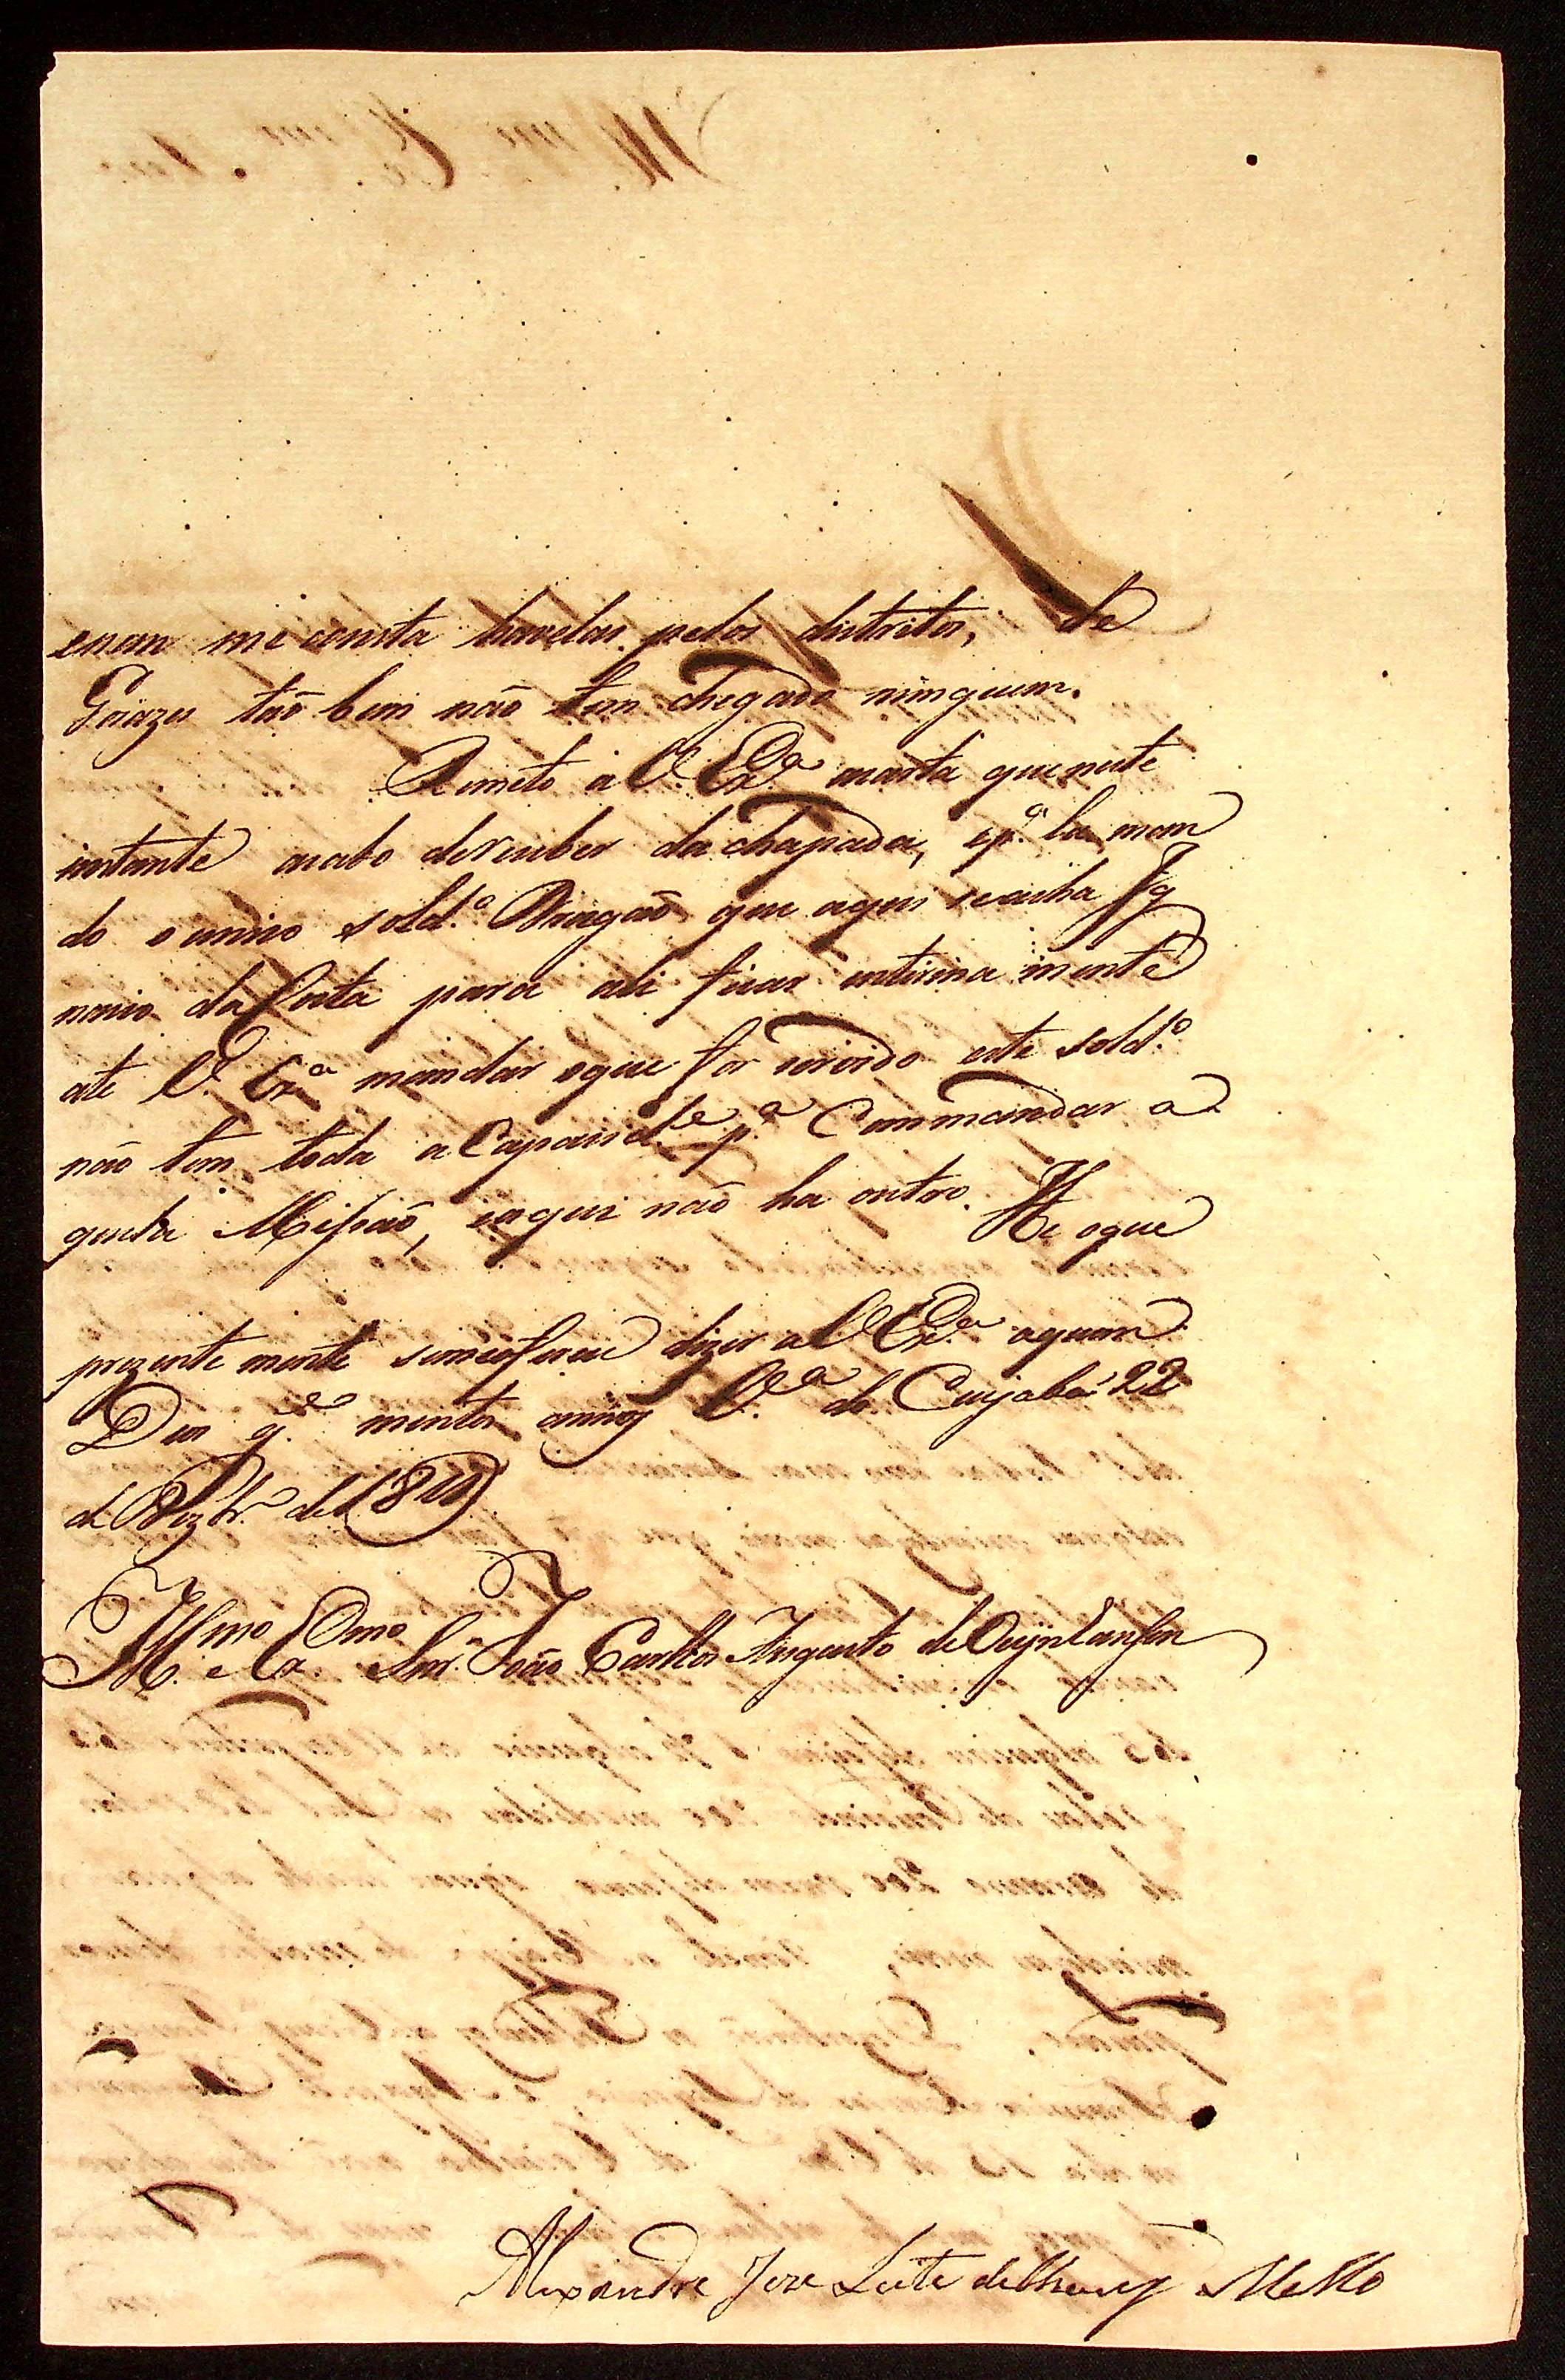 enem me consta havelas pelos distritos, de
Goiazes tão bem não tem chegado ninguem.
Remeto a V. Ex.ª acarta queneste
instante acabo dereceber da chapada, ep.ª la man
do ounico sold.º Dragaõ que aqui seacha Ig
nacio da Costa para ali ficar interina mente
ate V. Ex.ª mandar oque for servido este sold.º
não tem toda a Capacid.e p.ª Commandar a
quela Missaõ, eaqui naõ ha outro. He oque
prezente mente semeoferece dizer a V Ex.ª aquem
Deos g.e muitos annos V.ª do Cuyabá 22
de Dezbr.º de 1810
Ill.mo e Ex.mo Snr. João Carlos Augusto de Oeynhausen
Alexandre Joze Leite de Chaves Mello